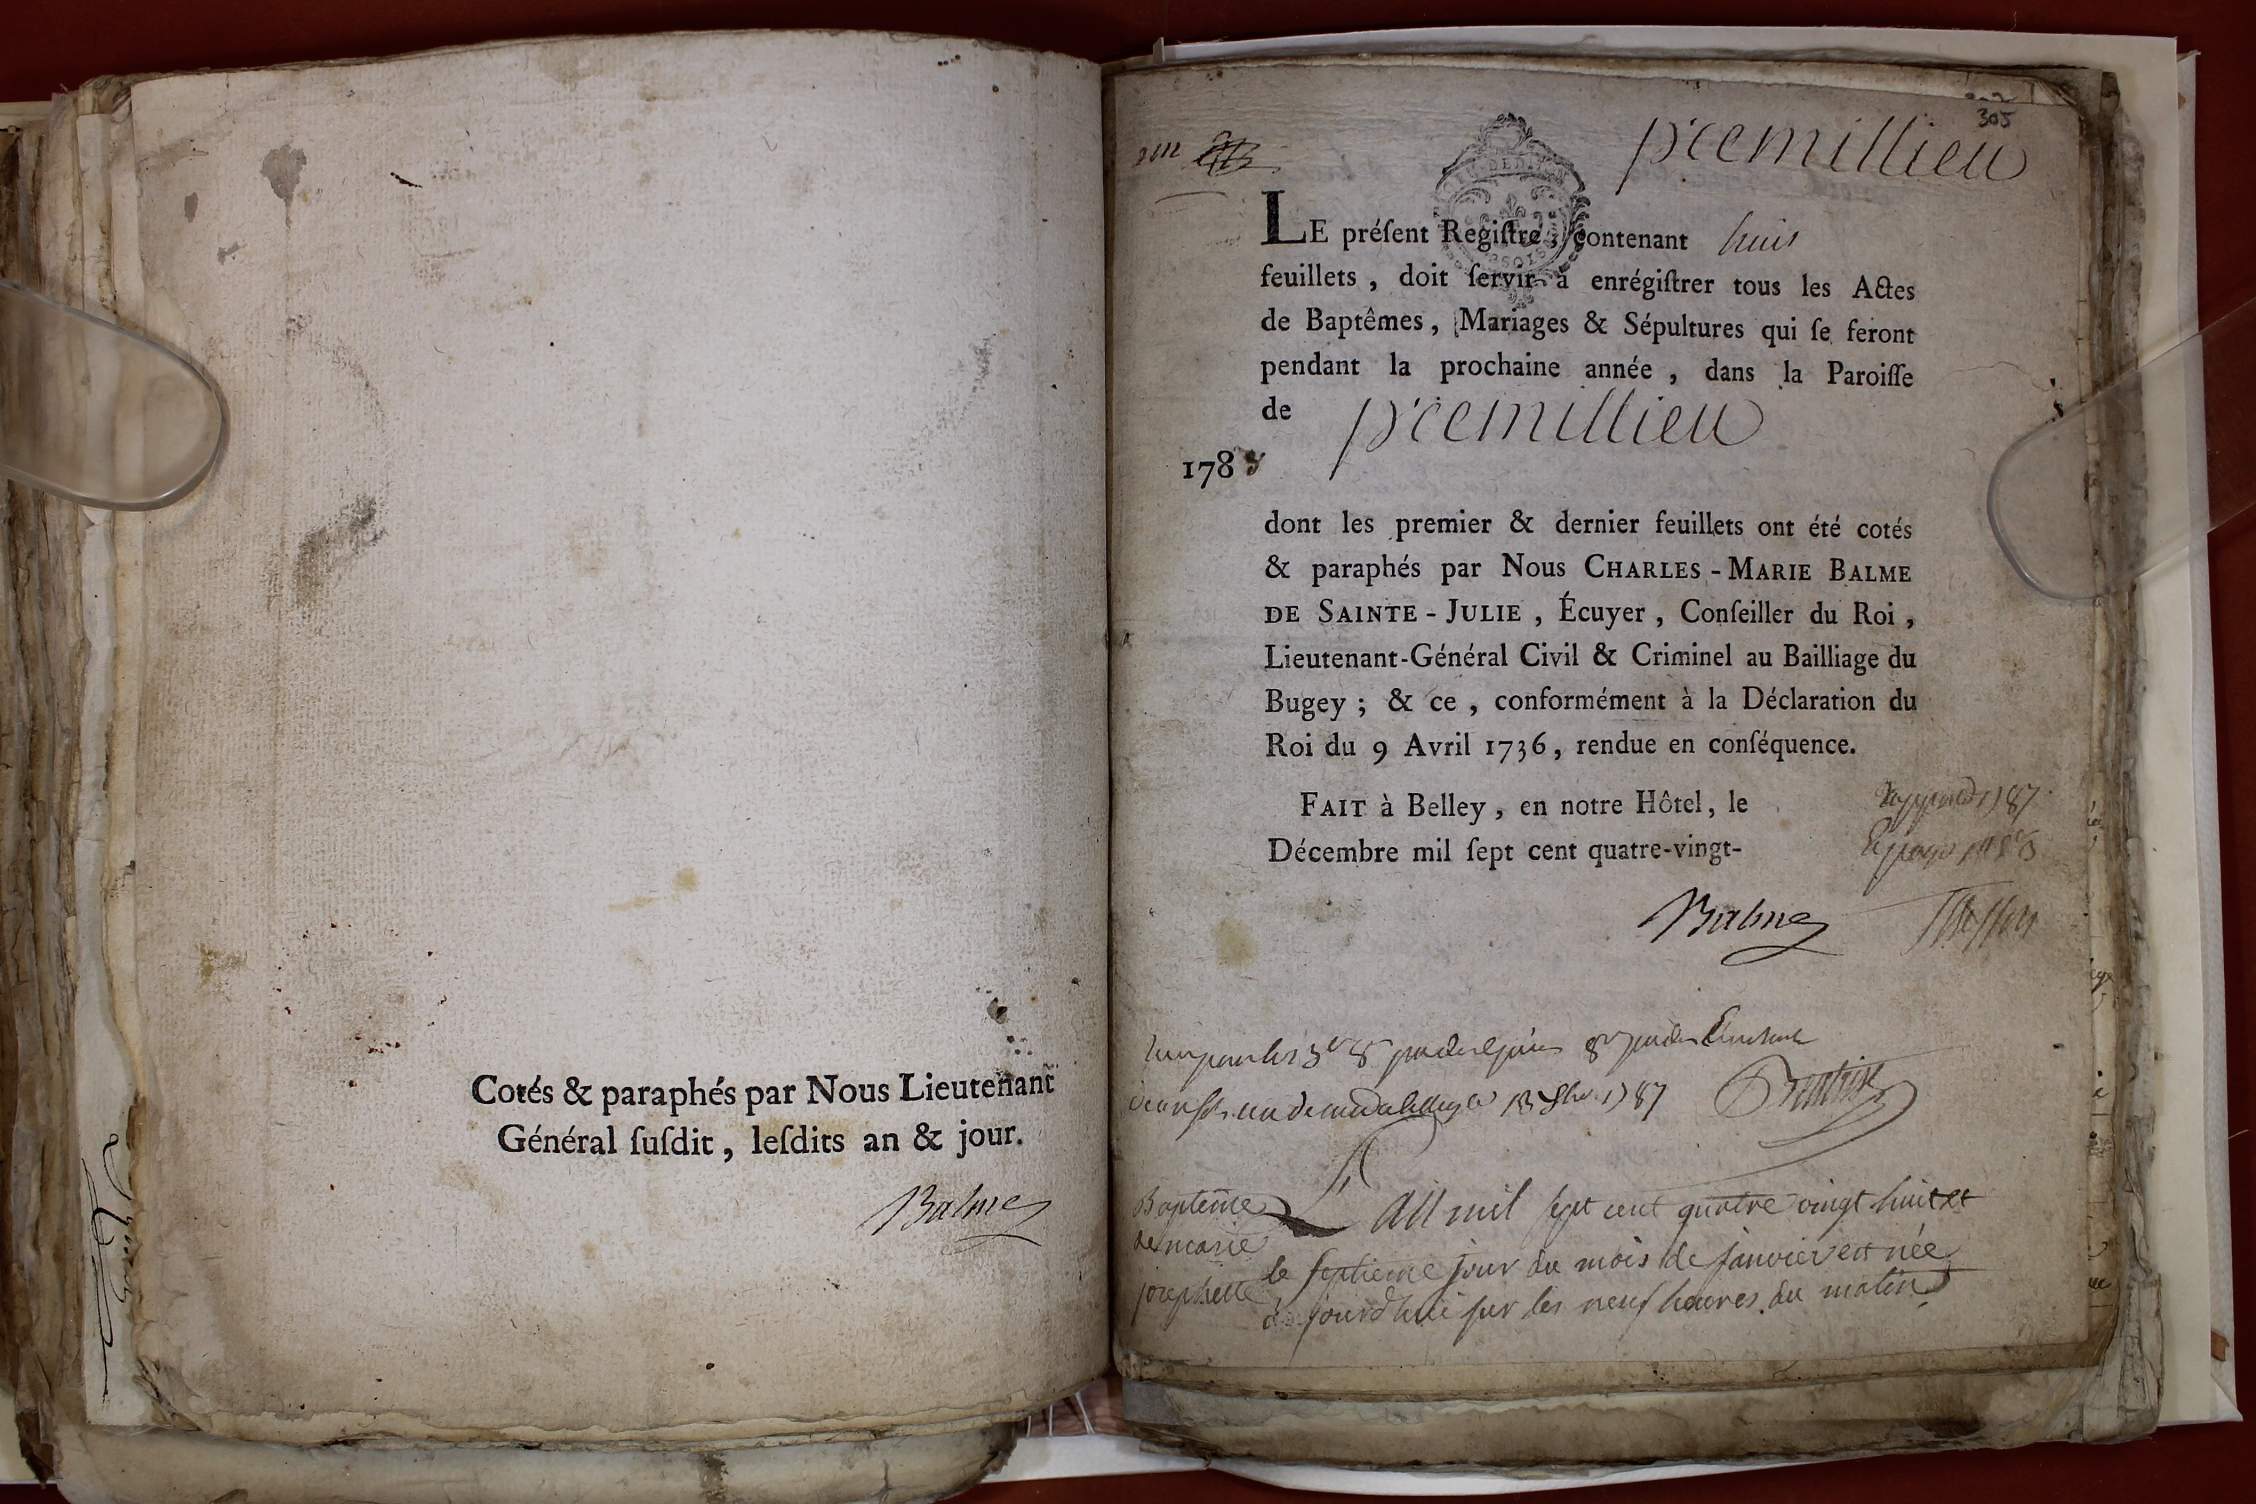 Cotés & paraphés par Nous Lieutenant
Général ſuſdit, leſdits an & jour.
Balme
305
premillieu
LE préſent Regiſtre, contenant huit
feuillets, doit ſervir à enrégiſtrer tous les Actes
de Baptêmes, Mariages & Sépultures qui ſe feront
pendant la prochaine année, dans la Paroiſſe
de premillieu
178
dont les premier & dernier feuillets ont été cotés
& paraphés par Nous CHARLES-MARIE BALME
DE SAINTE-JULIE, Écuyer, Conſeiller du Roi,
Lieutenant-Général Civil & Criminel au Bailliage du
Bugey; & ce, conformément à la Déclaration du
Roi du 9 Avril 1736, rendue en conſéquence.
FAIT à Belley, en notre Hôtel, le
Décembre mil ſept cent quatre-vingt-
Balme
1787
Baptême
de marie
josephette
L'an mil sept cent quatre vingt huit et
le septieme jour du mois de janvier est née
jourdhui sur les neuf heures du matin